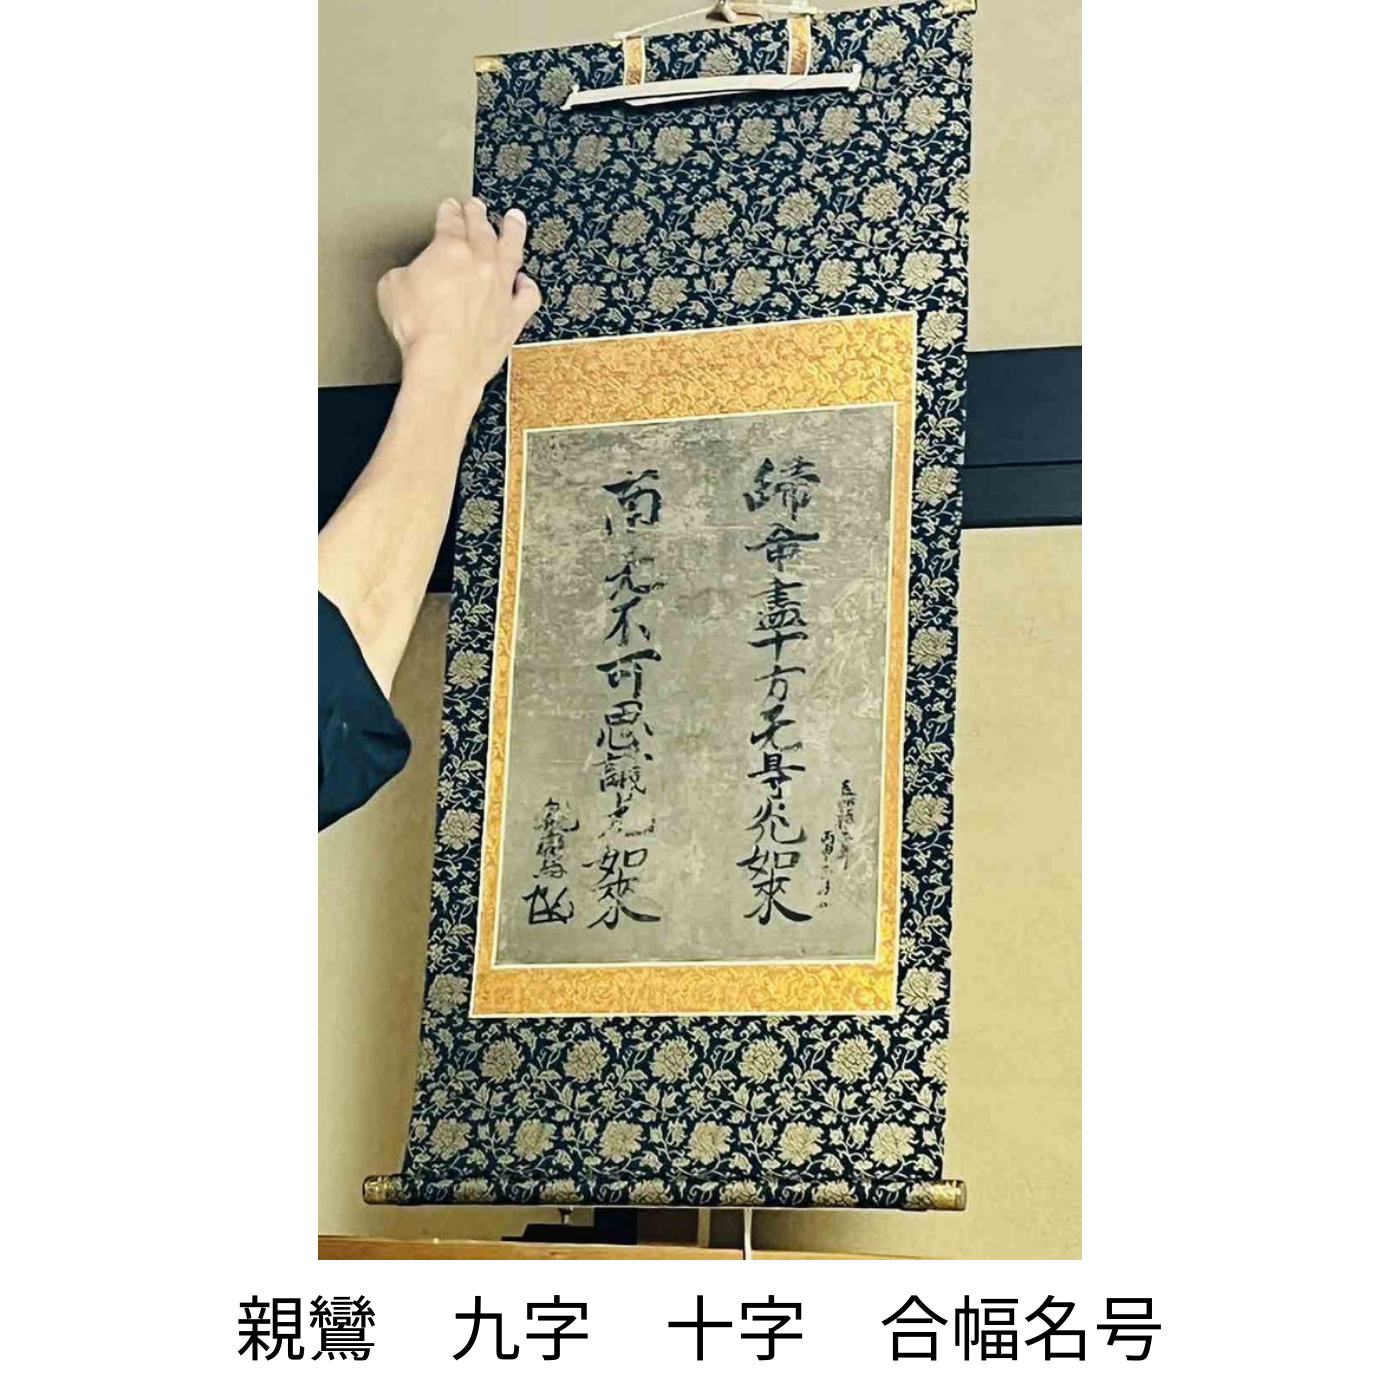 歸命盡十方无㝵光如來
南无不可思議光如來
親鸞　九字　十字　合幅名号